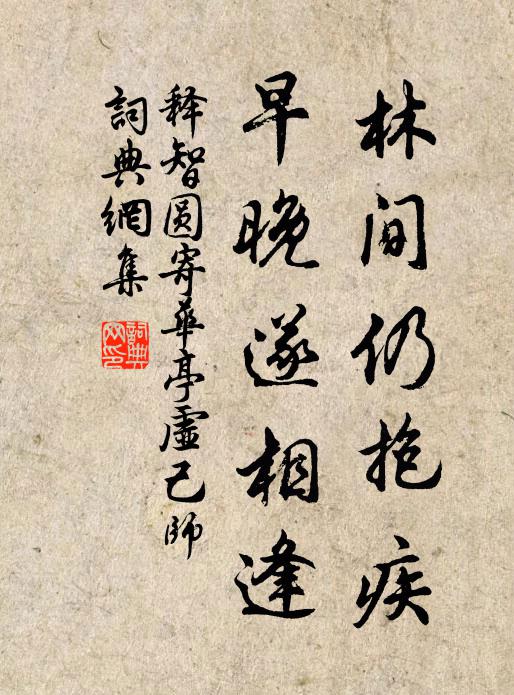 林间仍抱疾
早晚遂相逢
释智圆寄华亭虚己师
詞典網集
詞典网印